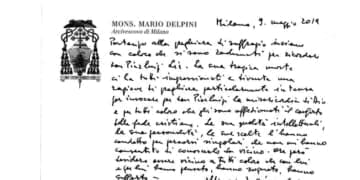 MONS. MARIO DELPINI
Arcivescovo di Milano
Milano, 9. maggio 2019
Partecipo alla preghiera di suffragio insieme
con coloro che si sono radunati per ricordare
don Pierluigi Lia. La sua tragica morte
ci ha tutti impressionati e diventa una
ragione di preghiera particolarmente intensa
per invocare per don Pierluigi la misericordia di Dio
e per tutti coloro che gli sono affezionati il conforto
della fede cristiana. Le sue qualità intellettuali,
la sua personalità, le sue scelte l'hanno
condotto per percorsi singolari che non mi hanno
consentito di conoscerlo da vicino. Ora però
desidero essere vicino a tutti coloro che con lui
e per lui hanno pensato, hanno sognato, hanno
sofferto